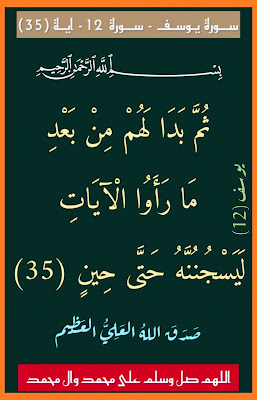 سورة يوسف - سورة 12 - آية (35)
بسم الله الرحمن الرحيم
ثُمَّ بَدَا لَهُمْ مِنْ بَعْدِ
مَا رَأَوُا الْآيَاتِ
لَيَسْجُنُنَّهُ حَتَّى حِينٍ (35)
يوسف (12)
صَدَقَ اللهُ العَلِيُّ العَظِيم
اللهم صل وسلم على محمد وال محمد